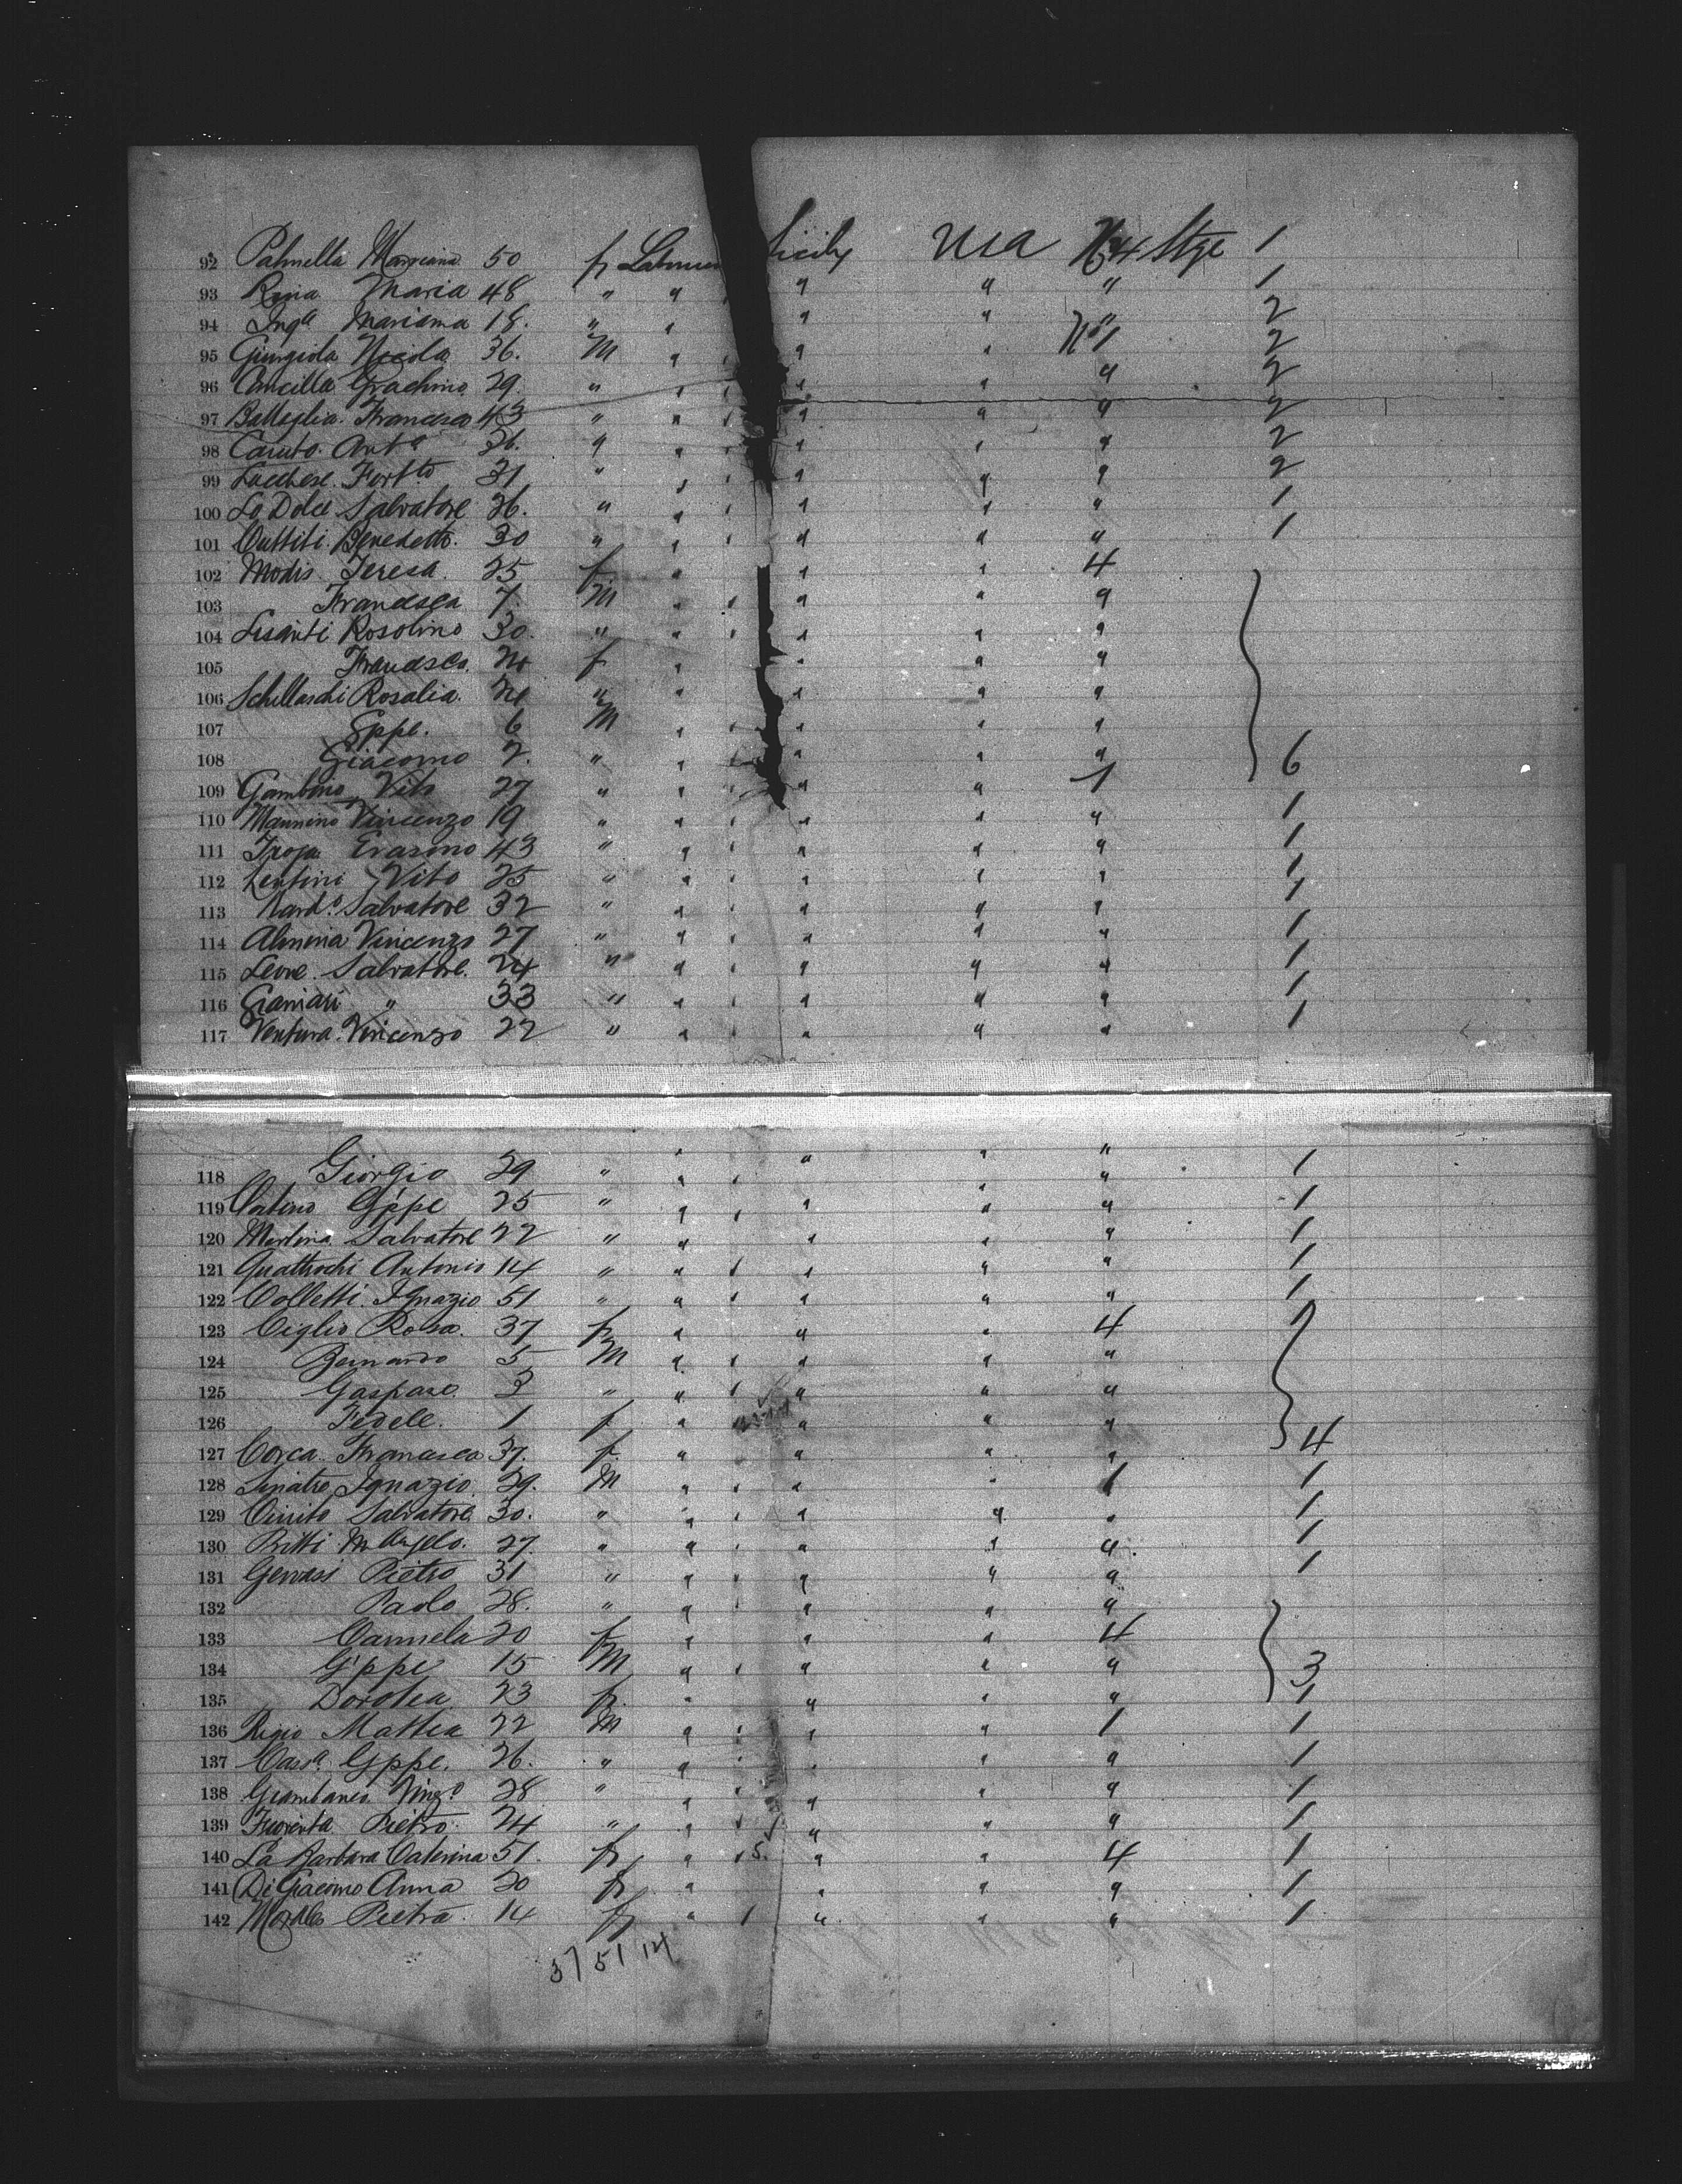 92 Palmella Marciana 50 f Labourer Sicily USA No 4 Stge 1
93 Raia Maria 48 " " " " " 1
94 Inga Marianna 18. " " " " " 2
95 Giurgiola Nicola 36. M " " " No 1 2
96 Cancilla Giachino 29. " " " " " 2
97 Battaglia Francesco 43 " " " " " 2
98 Caruto Anta 36. " " " " " 2
99 Lucchese Fortto 31 " " " " " 2
100 Lo Dolce Salvatore 26. " " " " " 1
101 Cuttiti Benedetto. 30 " " " " " 1
102 Modis Teresa. 25 f " " " 4
103 Francesca 7. M " " " "
104 Lisanti Rosolino 30. " " " " "
105 Francesca. 24 f " " " "
106 Schillaschi Rosalia. 24 " " " " "
107 Gppe. 6 M " " " "
108 Giacomo 2. " " " " " 6
109 Gambino Vito 27 " " " " 1
110 Mannino Vincenzo 19 " " " " " 1
111 Troja Erasmo 43 " " " " " 1
112 Lentini Vito 25 " " " " " 1
113 Nardo Salvatore 32 " " " " " 1
114 Almeria Vincenzo 27 " " " " " 1
115 Leone Salvatore. 24 " " " " " 1
116 " 33 " " " " " 1
117 Ventura Vincenzo 22 " " " " " 1
118 Giorgio 29 " " " " " 1
119 Gppe 25 " " " " " 1
120 Merlina Salvatore 22 " " " " " 1
121 Quattrochi Antonio 14 " " " " " 1
122 Colletti Ignazio 51 " " " " " 1
123 Ciglio Rosa. 37 f " " " 4
124 Bernardo 5 M " " " "
125 Gaspare 3 " " " " "
126 Fedele. 1 f " " " " 4
127 Corca Francesca 37. f " " " "
128 Sinatro Ignazio. 29. M " " " 1 1
129 Cirrito Salvatore 30. " " " " " 1
130 Pitti M Angelo. 27. " " " " " 1
131 Gervasi Pietro 31 " " " " " 1
132 Paolo 28. " " " " "
133 Carmela 20 f " " " 4
134 Gppe 15 M " " " " 3
135 Dorotea 23 f. " " " " 1
136 Regio Mattea 22 M " " " 1 1
137 Casa Gppe. 26. " " " " " 1
138 Giambanco Vinzo 28 " " " " " 1
139 Pietro 24 " " " " " 1
140 La Barbara Caterina 51. f " 5. " " 4 1
141 Di Giacomo Anna 20 f " " " " 1
142 Morales Pietra. 14 f " 1 " " " 1
37 51 14